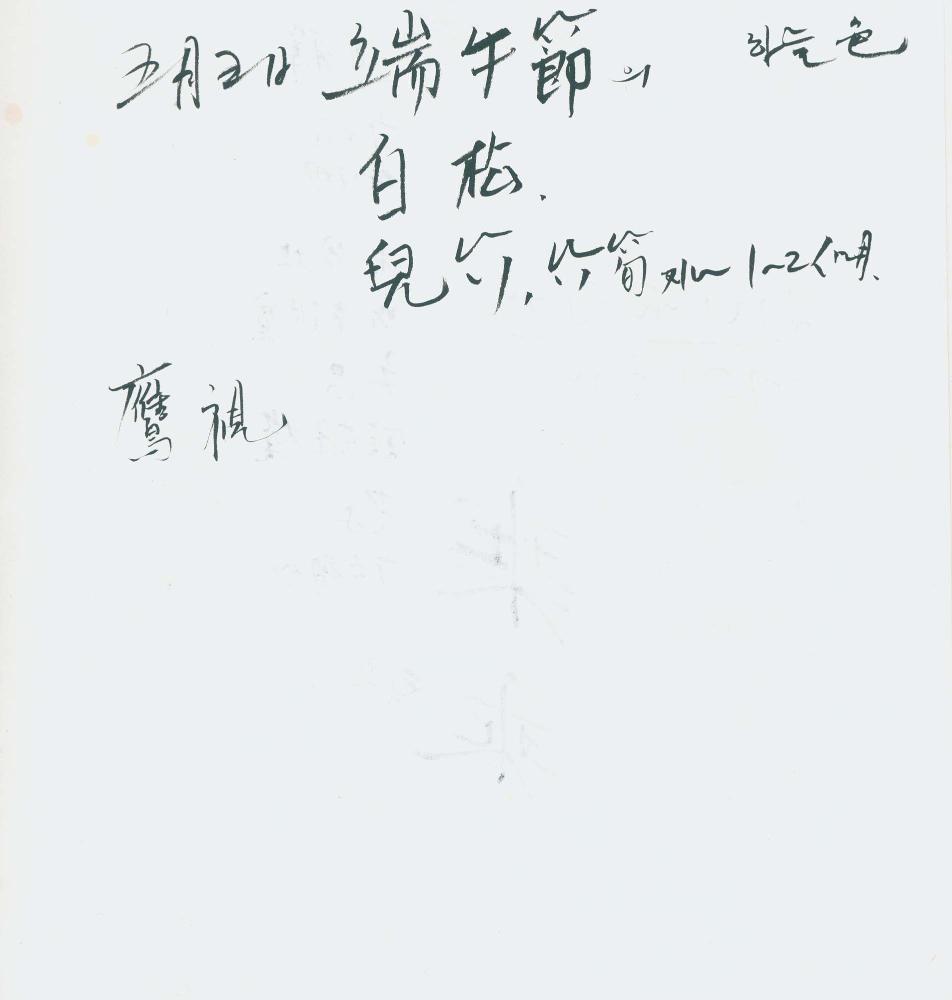 五月五日 端午節의 하늘色
白松.
兒竹, 竹筍 지나 1~2個月.
鷹視